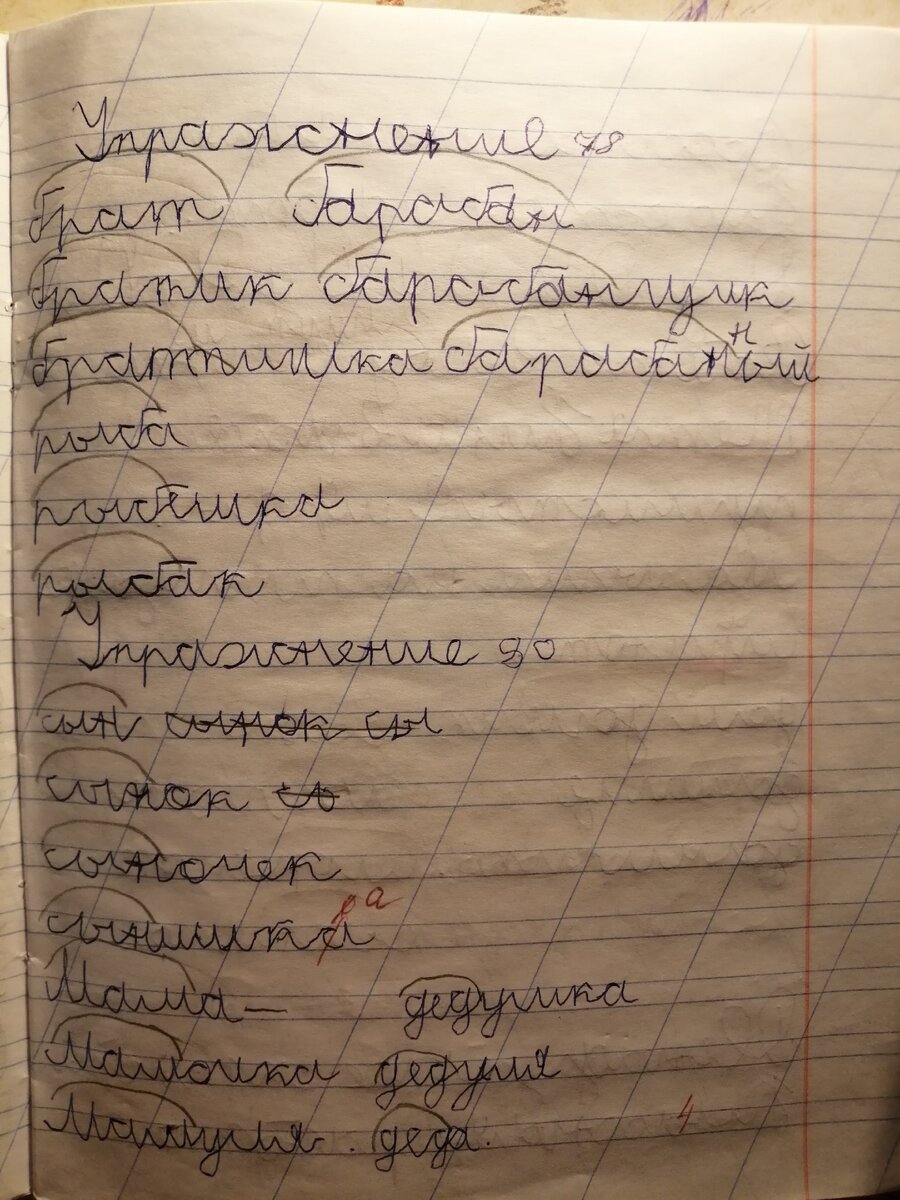 Упражнение 78
брат барабан
братик барабанщик
братишка барабанный
рыба
рыбёшка
рыбак
Упражнение 80
сын сынок сы
сынок сь
сыночек
сынишка а
Мама— дедушка
Мамочка дедуля
Мамуля. деда.
4